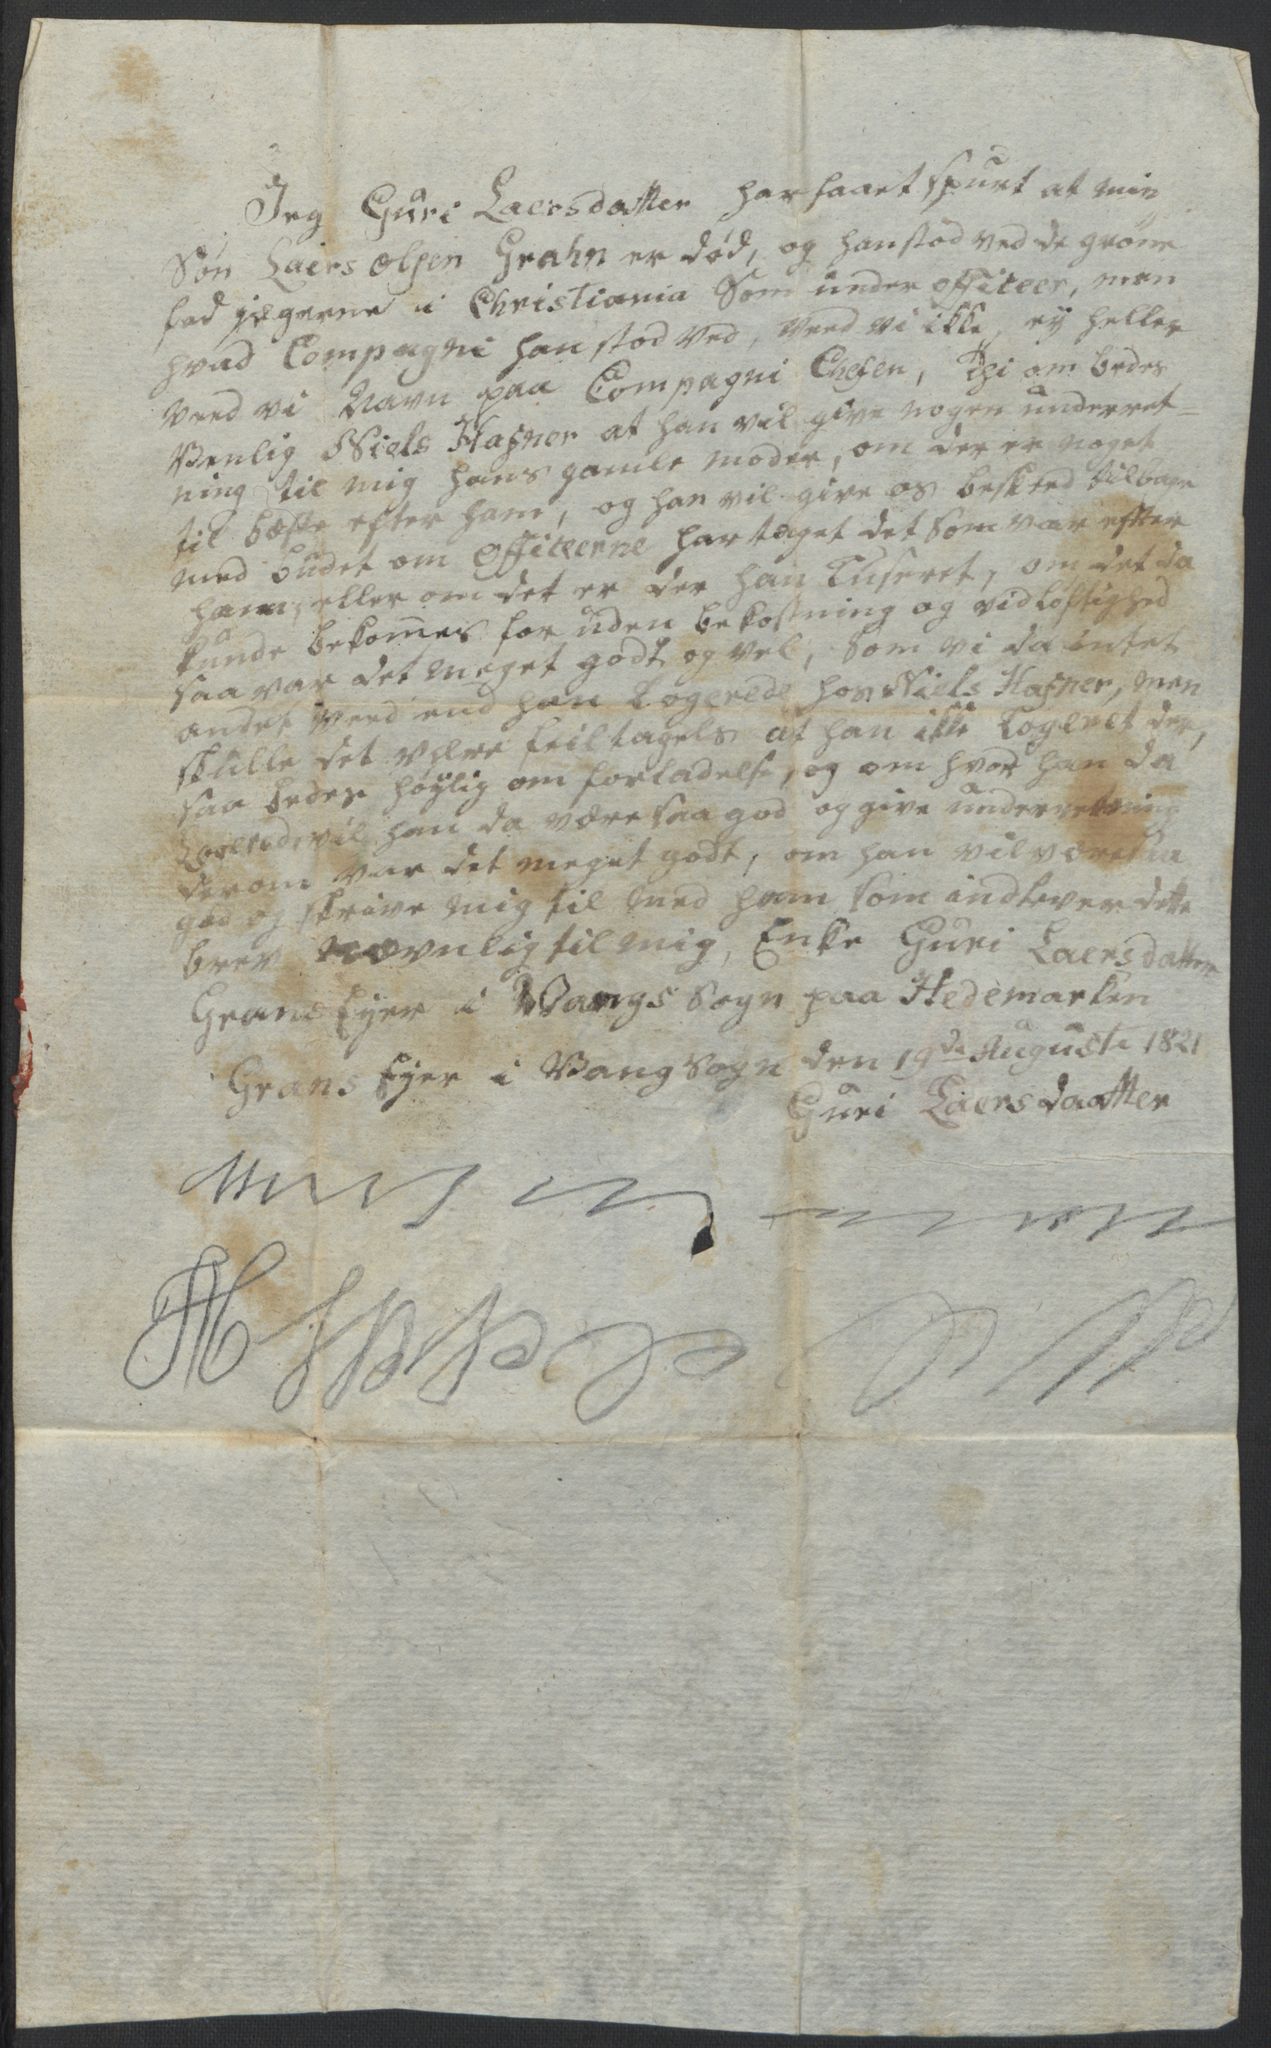 Jeg Guri Laersdatter har faaet spurt at min
Søn Laers Olsen Grahn er død, og han stod ved de grøne
fod jægerne i Christiania Som under officeer, men
hvad Compagni han stod ved, veed vi ikke, ey heller
veed vi Navn paa Compagni Chefen, Thi om bedes
Venlig Niels Hafner at han vil give nogen underret-
ning til mig hans gamle moder, om der er noget
til bæste efter ham, og han vil give os beskeed tilbage
med budet om Officeerne har taget det som var efter
ham, eller om det er der han Luseret, om det da
kunde bekomes for uden bekostning og vidløftighed
saa var det meget godt og vel, Som vi da intet
andet veed end han Logerede hos Niels Hafner, men
skulle det være feiltagels at han ikke Logeret der,
saa bedes høylig om forladelse, og om hvor han da
Logerede vil han da være saa god og give underretning
derom var det meget godt, om han vil være saa
god og skrive mig til med ham som indlever dette
brev Nævnlig til mig, Enke Guri Laersdatter
Grans Eyer i Vangs Sogn paa Hedemarken
Grans Eyer i Vang Sogn den 19de Auguste 1821
Guri Laersdaatter